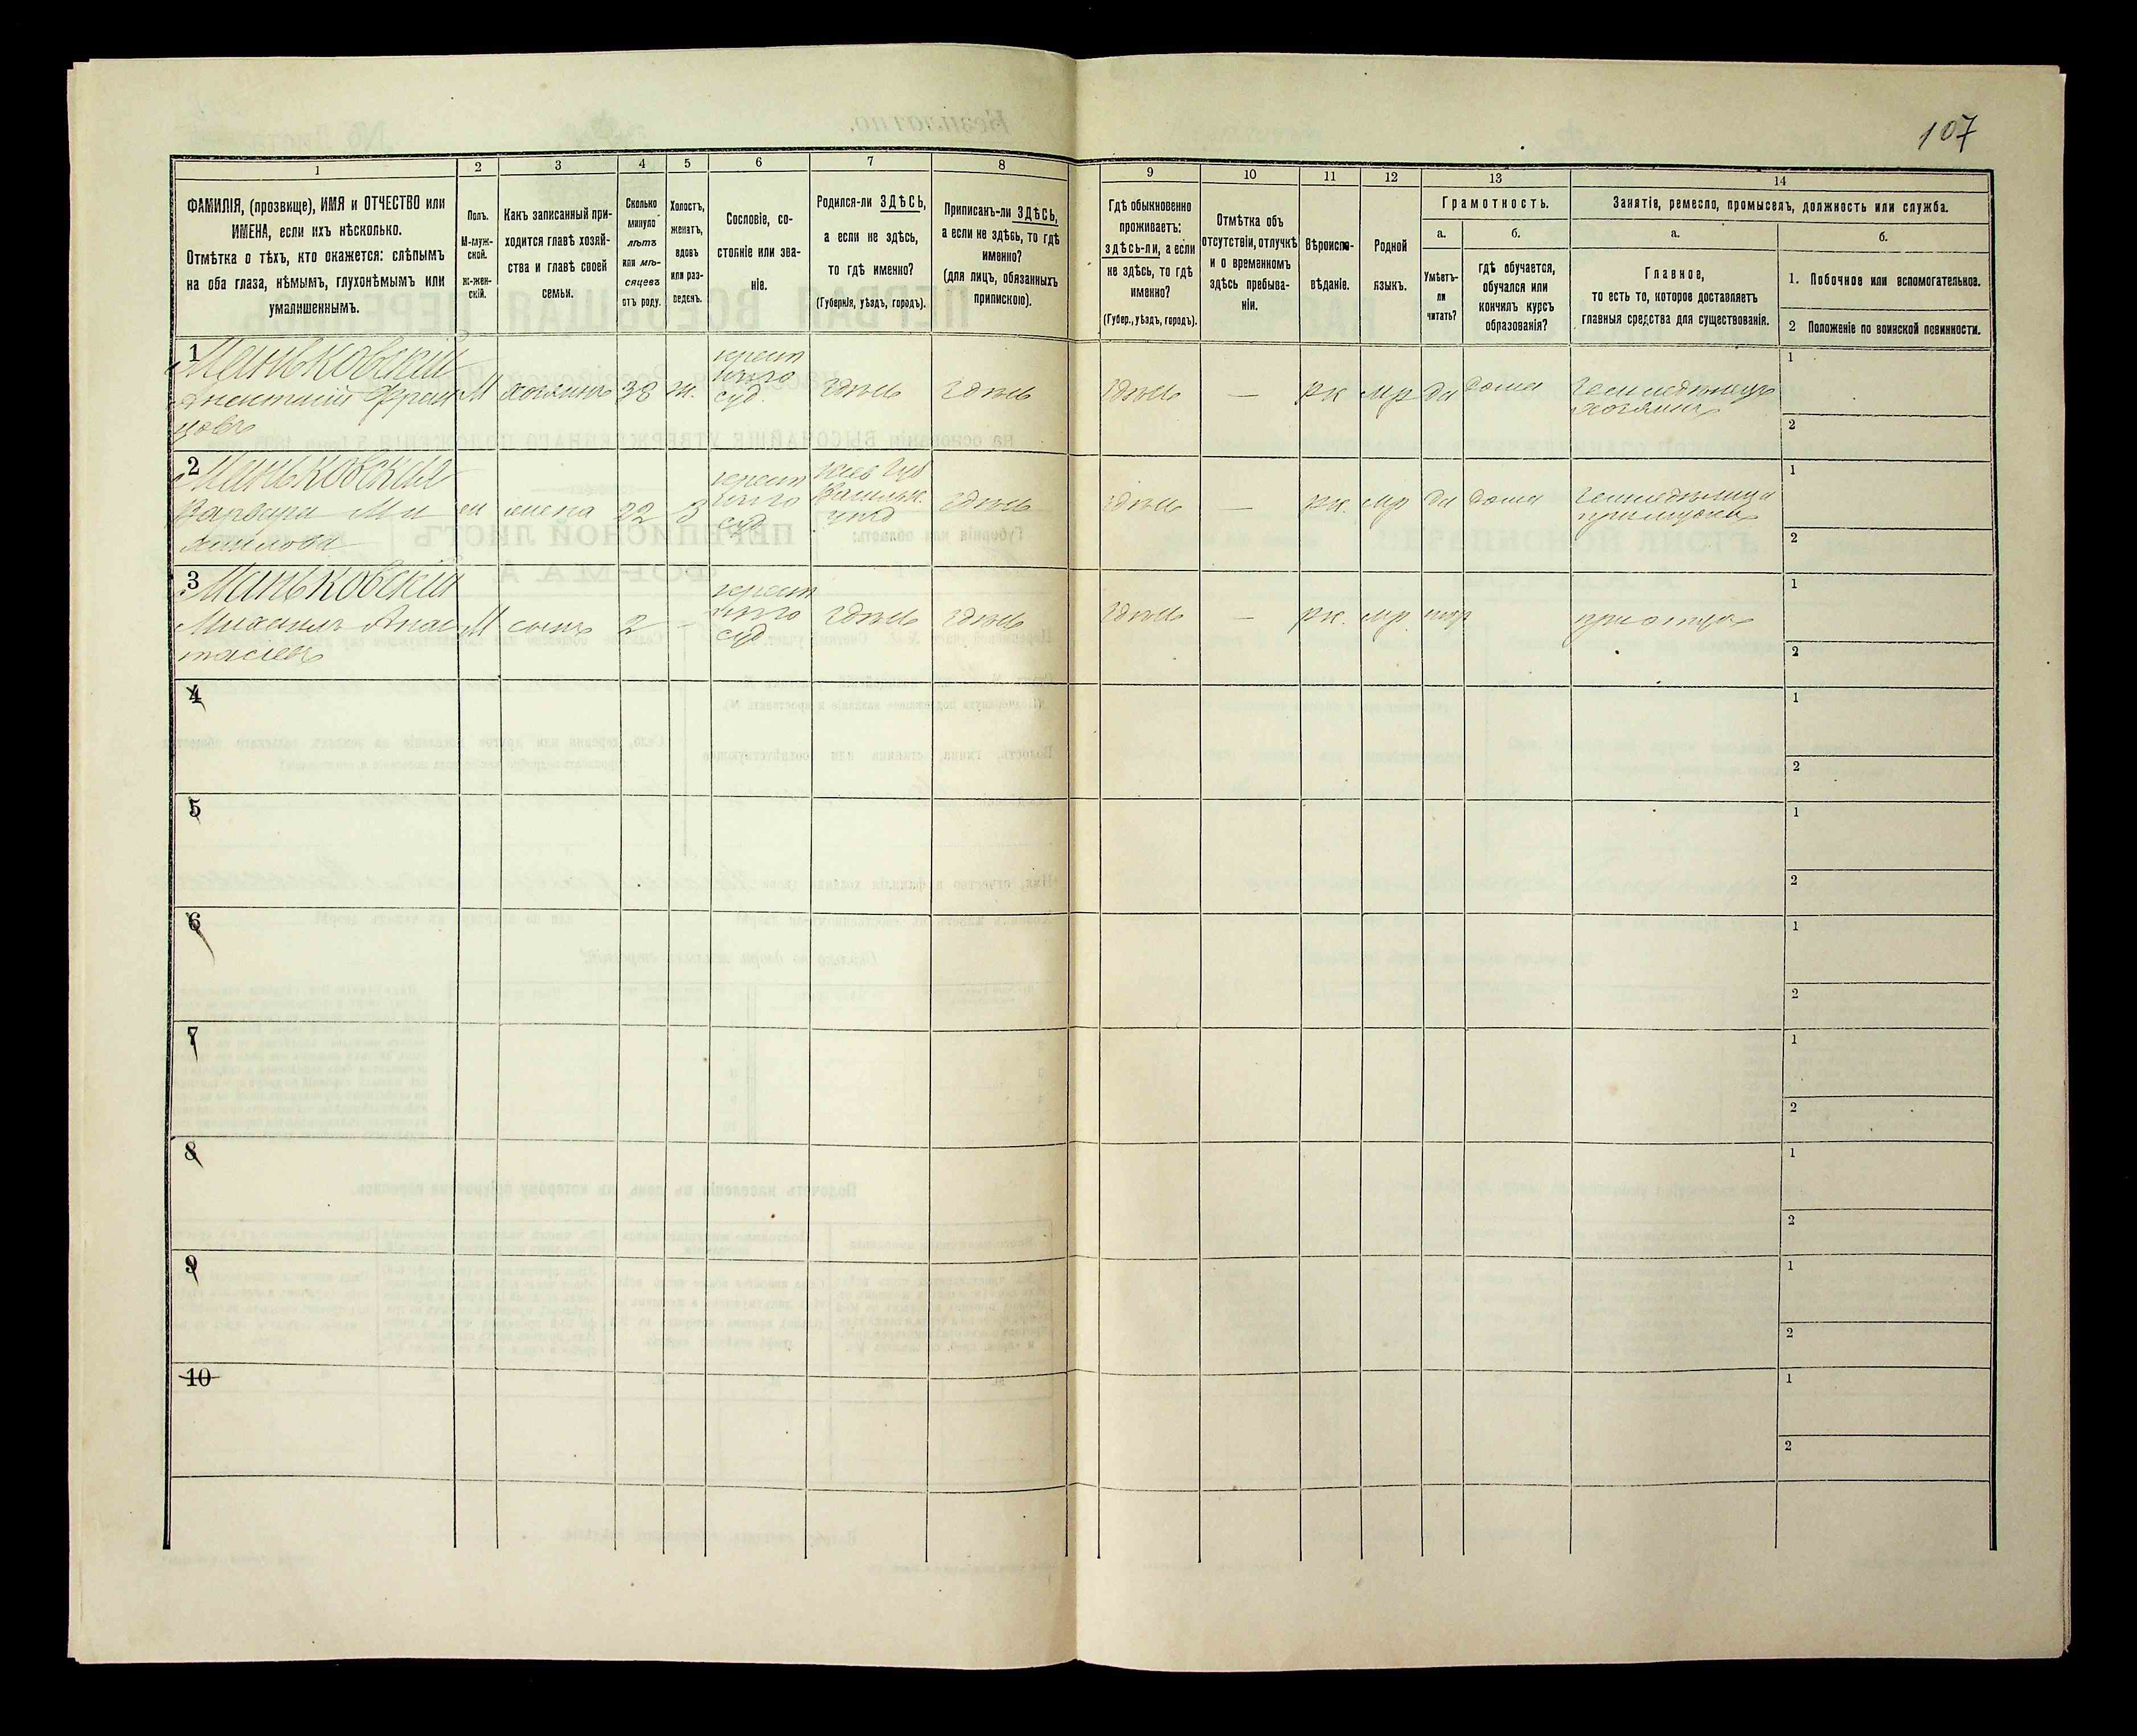 107
1
2
3
4
5
6
7
8
9
10
11
12
13
14
ФАМИЛІЯ, (прозвище), ИМЯ и ОТЧЕСТВО или
ИМЕНА, если ихъ нѣсколько.
Отмѣтка о тѣхъ, кто окажется: слѣпымъ
на оба глаза, нѣмымъ, глухонѣмымъ или
умалишеннымъ.
Полъ.
М-муж-
ской.
ж-жен-
скій.
Какъ записанный при-
ходится главѣ хозяй-
ства и главѣ своей
семьи.
Сколько
минуло
лѣтъ
или мѣ-
сяцевъ
отъ роду.
Холостъ,
женатъ,
вдовъ
или раз-
веденъ.
Сословіе, со-
стояніе или зва-
ніе.
Родился-ли ЗДѢСЬ,
а если не здѣсь,
то гдѣ именно?
(Губернія, уѣздъ, городъ).
Приписанъ-ли ЗДѢСЬ,
а если не здѣсь, то гдѣ
именно?
(для лицъ, обязанныхъ
припискою).
Гдѣ обыкновенно
проживаетъ:
здѣсь-ли, а если
не здѣсь, то гдѣ
именно?
(Губер., уѣздъ, городъ).
Отмѣтка объ
отсутствіи, отлучкѣ
и о временномъ
здѣсь пребыва-
ніи.
Вѣроиспо-
вѣданіе.
Родной
языкъ.
Грамотность.
а.
Умѣетъ-
ли
читать?
б.
гдѣ обучается,
обучался или
кончилъ курсъ
образованія?
Занятія, ремесло, промыселъ, должность или служба.
а.
Главное,
то есть то, которое доставляетъ
главныя средства для существованія.
б.
1. Побочное или вспомогательное.
2 Положеніе по воинской повинности.
1
Маньковскій
Анастасій Фран
цовъ
М
хозяинъ
38
ж.
крест
суд.
здѣсь
здѣсь
здѣсь
—
рк
мр
да
дома
Земледѣлецъ
хозяинъ
1
2
2
Маньковская
Варвара Ми
хаилова
ж
жена
22
з
крест
суд
Кіев Губ
Васильк.
уѣзд
здѣсь
здѣсь
—
рк.
мр
да
дома
Земледѣлица
при мужѣ
1
2
3
Маньковскій
Михаилъ Анас
тасіевъ
М
сынъ
2
-
крест
суд
здѣсь
здѣсь
здѣсь
—
рк.
мр.
при отцѣ
1
2
4
1
2
5
1
2
6
1
2
7
1
2
8
1
2
9
1
2
10
1
2